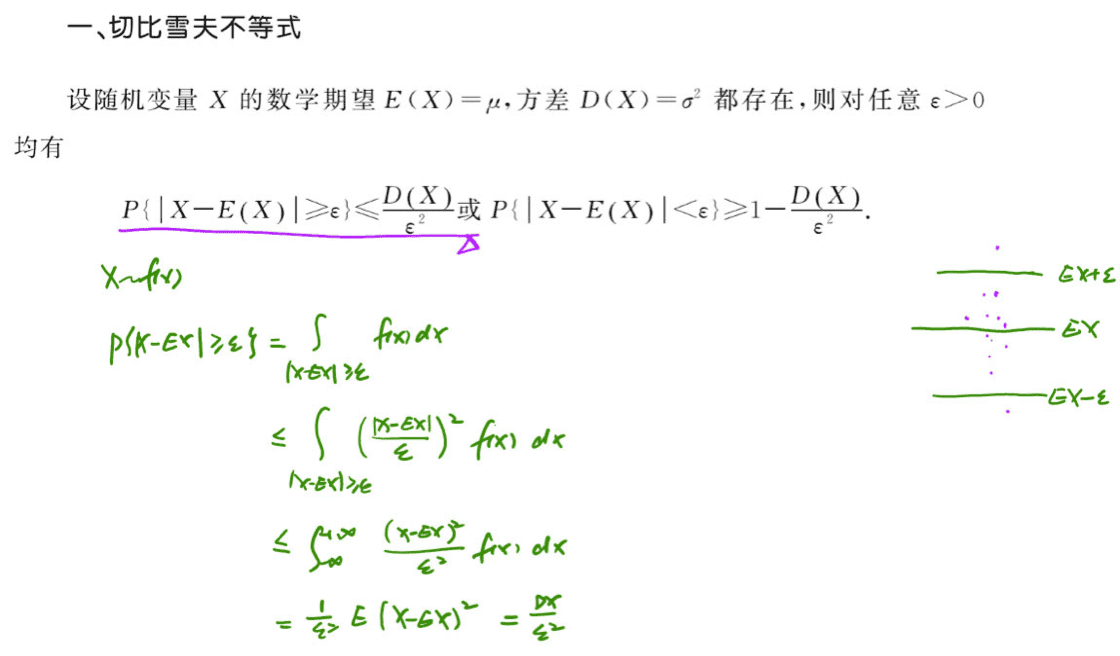 一、切比雪夫不等式
设随机变量 X 的数学期望 E(X)=μ,方差 D(X)=σ² 都存在,则对任意 ε>0
均有
P{|X-E(X)|≥ε}≤D(X)/ε² 或 P{|X-E(X)|<ε}≥1-D(X)/ε².
X~f(x)
P{|X-EX|≥ε} = ∫_{|x-EX|≥ε} f(x)dx
≤ ∫_{|x-EX|≥ε} (|x-EX|/ε)² f(x) dx
≤ ∫_{-∞}^{+∞} (x-EX)²/ε² f(x) dx
= 1/ε² E(X-EX)² = DX/ε²
EX+ε
EX
EX-ε